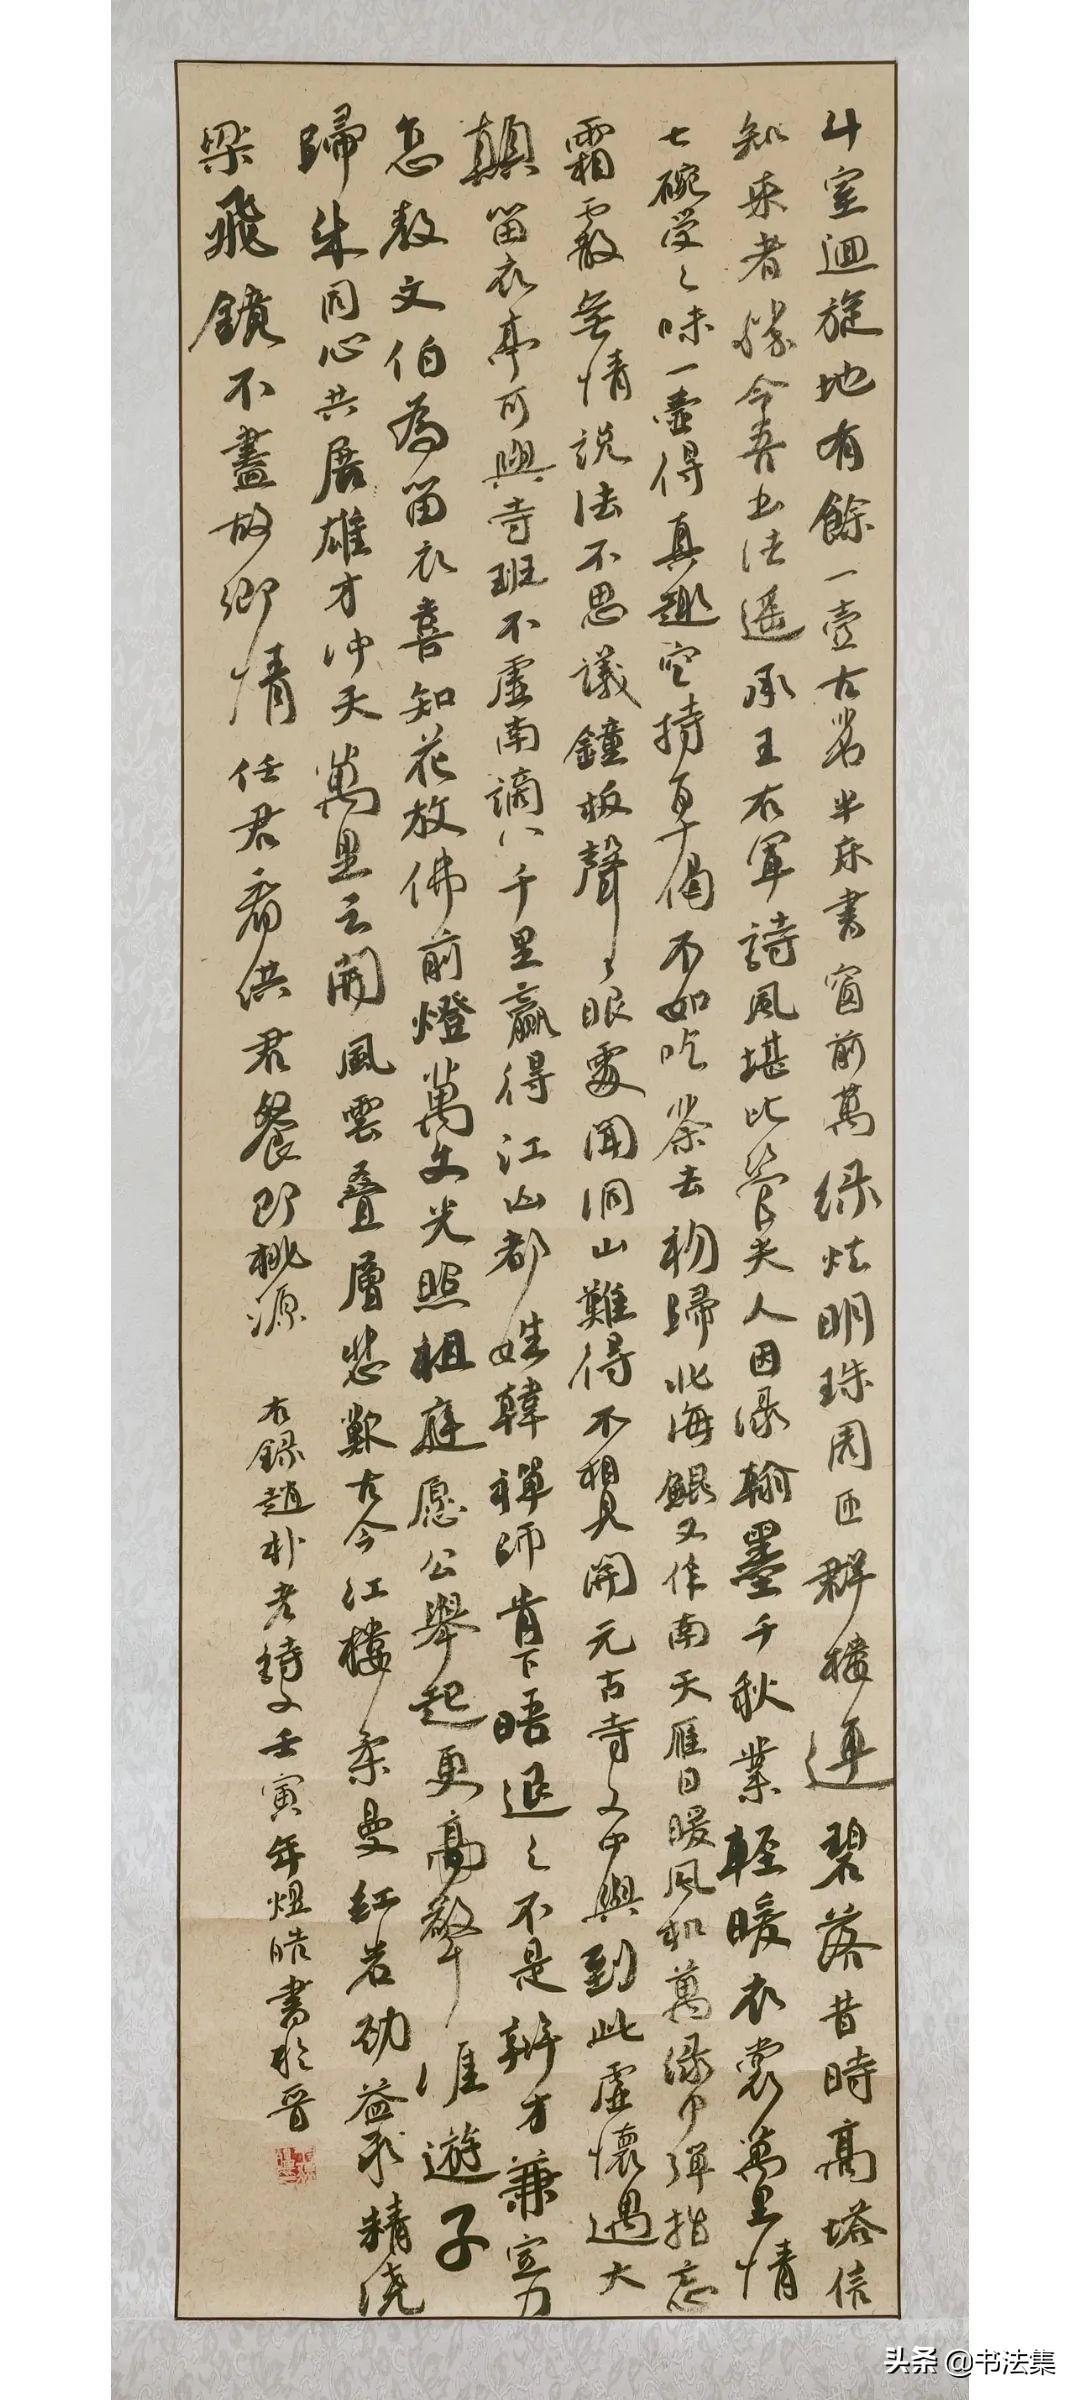 斗室迴旋地有餘一壺古茗半床書窗前萬綠炫明珠周匝群樓連碧落昔時高塔信
知來者勝今吾書法遥承王右軍詩風堪比管夫人因緣翰墨千秋業輕暖衣裳萬里情
七碗受々味一壺得真趣空持百千偈不如吃茶去物歸北海鯤又作南天雁日暖風和萬緣中彈指忘
霜霰無情説法不思議鐘板聲々眼處聞洞山難得不相見開元古寺又中興到此虛懷遇大
顛留衣亭可與寺班不虛南謫八千里贏得江山都姓韓禪師肯下晤退之不是辯才兼定力
怎教文伯為留衣喜知花放佛前燈萬丈光照祖庭愿公舉起更高擎 涯遊子
歸朱同心共展雄才沖天萬里云開風雲叠層悲歎古今紅樓柔曼紅岩劲益求精繞
梁飛鏡不盡故鄉情任君看供君餐即桃源
右錄趙朴老詩文壬寅年煜皓書於晋
头条@书法集